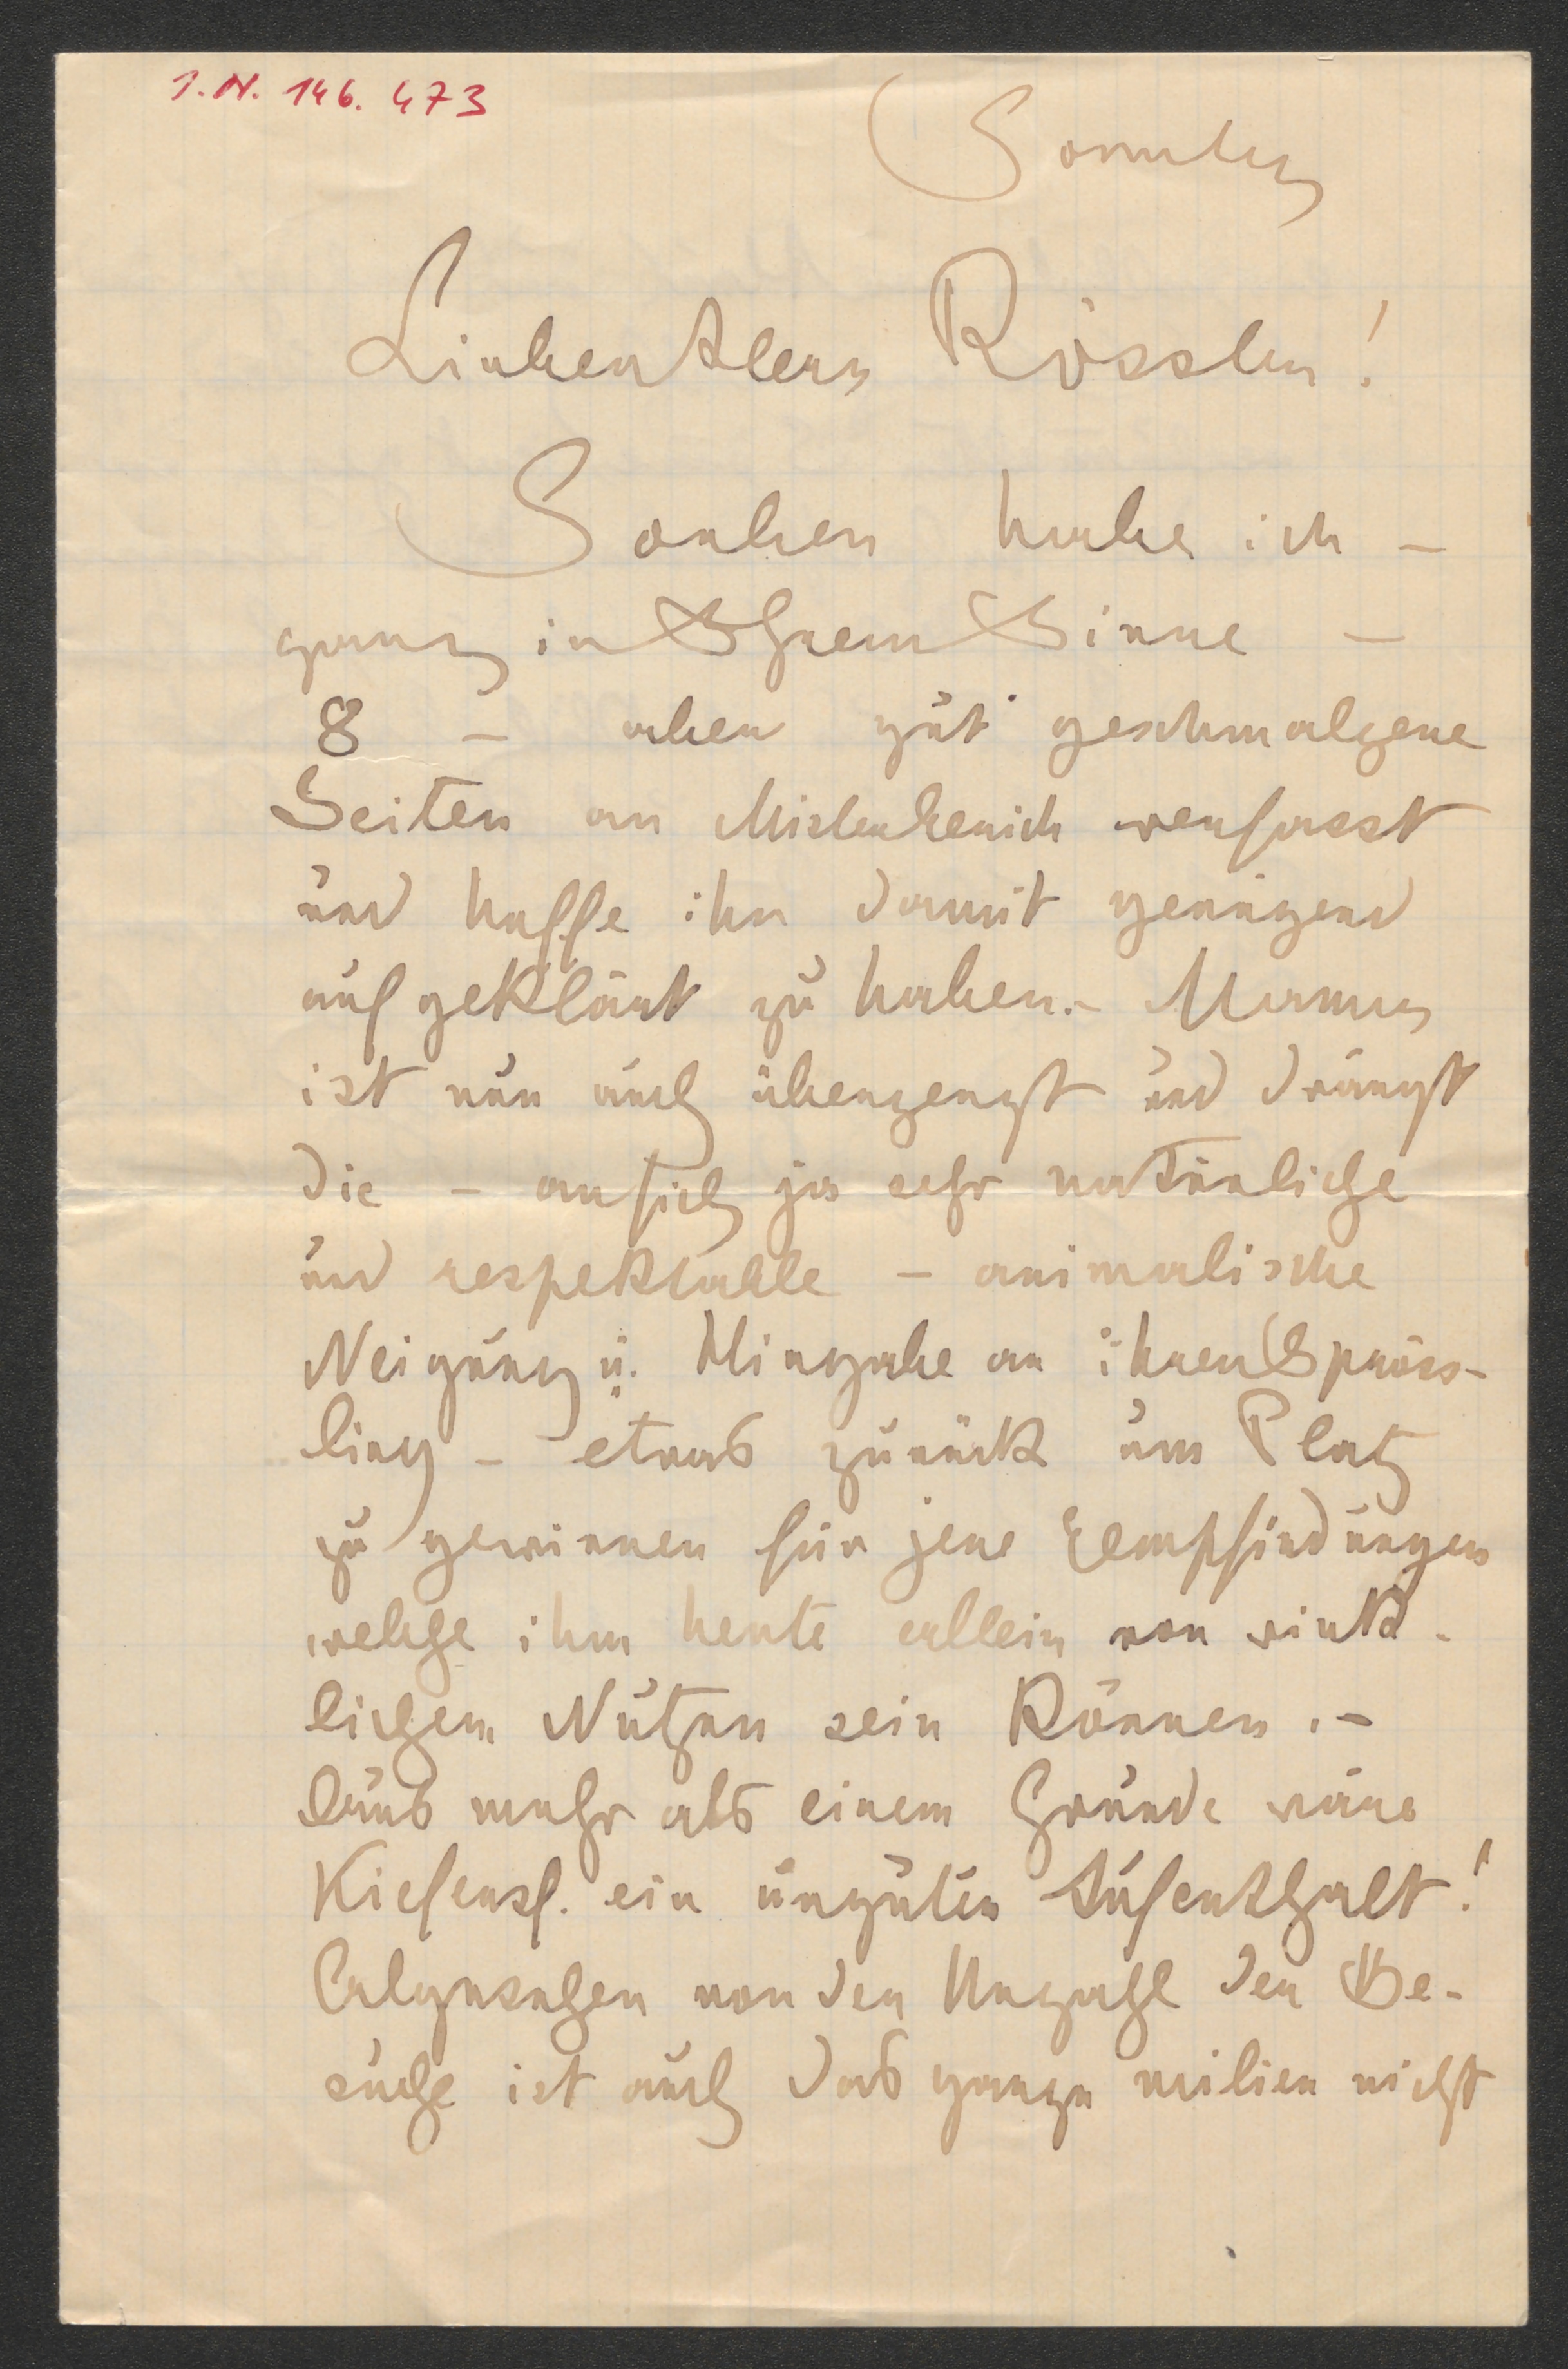 I.N. 146.473
Sonntag
Lieber Herr Rössler!
Soeben habe ich –
ganz in Ihrem Sinne –
8 – aber gut geschmalzene
Seiten an verfasst
und hoffe ihn damit genügend
aufgeklärt zu haben.– Mama
ist nun auch überzeugt und drängt
die – an sich ja sehr natürliche
und respektable – animalische
Neigung u. Hingabe an ihren Spröss-
ling – etwas zurück um Platz
zu gewinnen für jene Eempfindungen
welche ihm heute allein von wirk-
lichem Nutzen sein können.–
Aus mehr als einem Grunde wäre
Kiefersf. ein unguter Aufenthalt!
Abgesehen von der Unzahl der Be-
suche ist auch das ganze milieu nicht